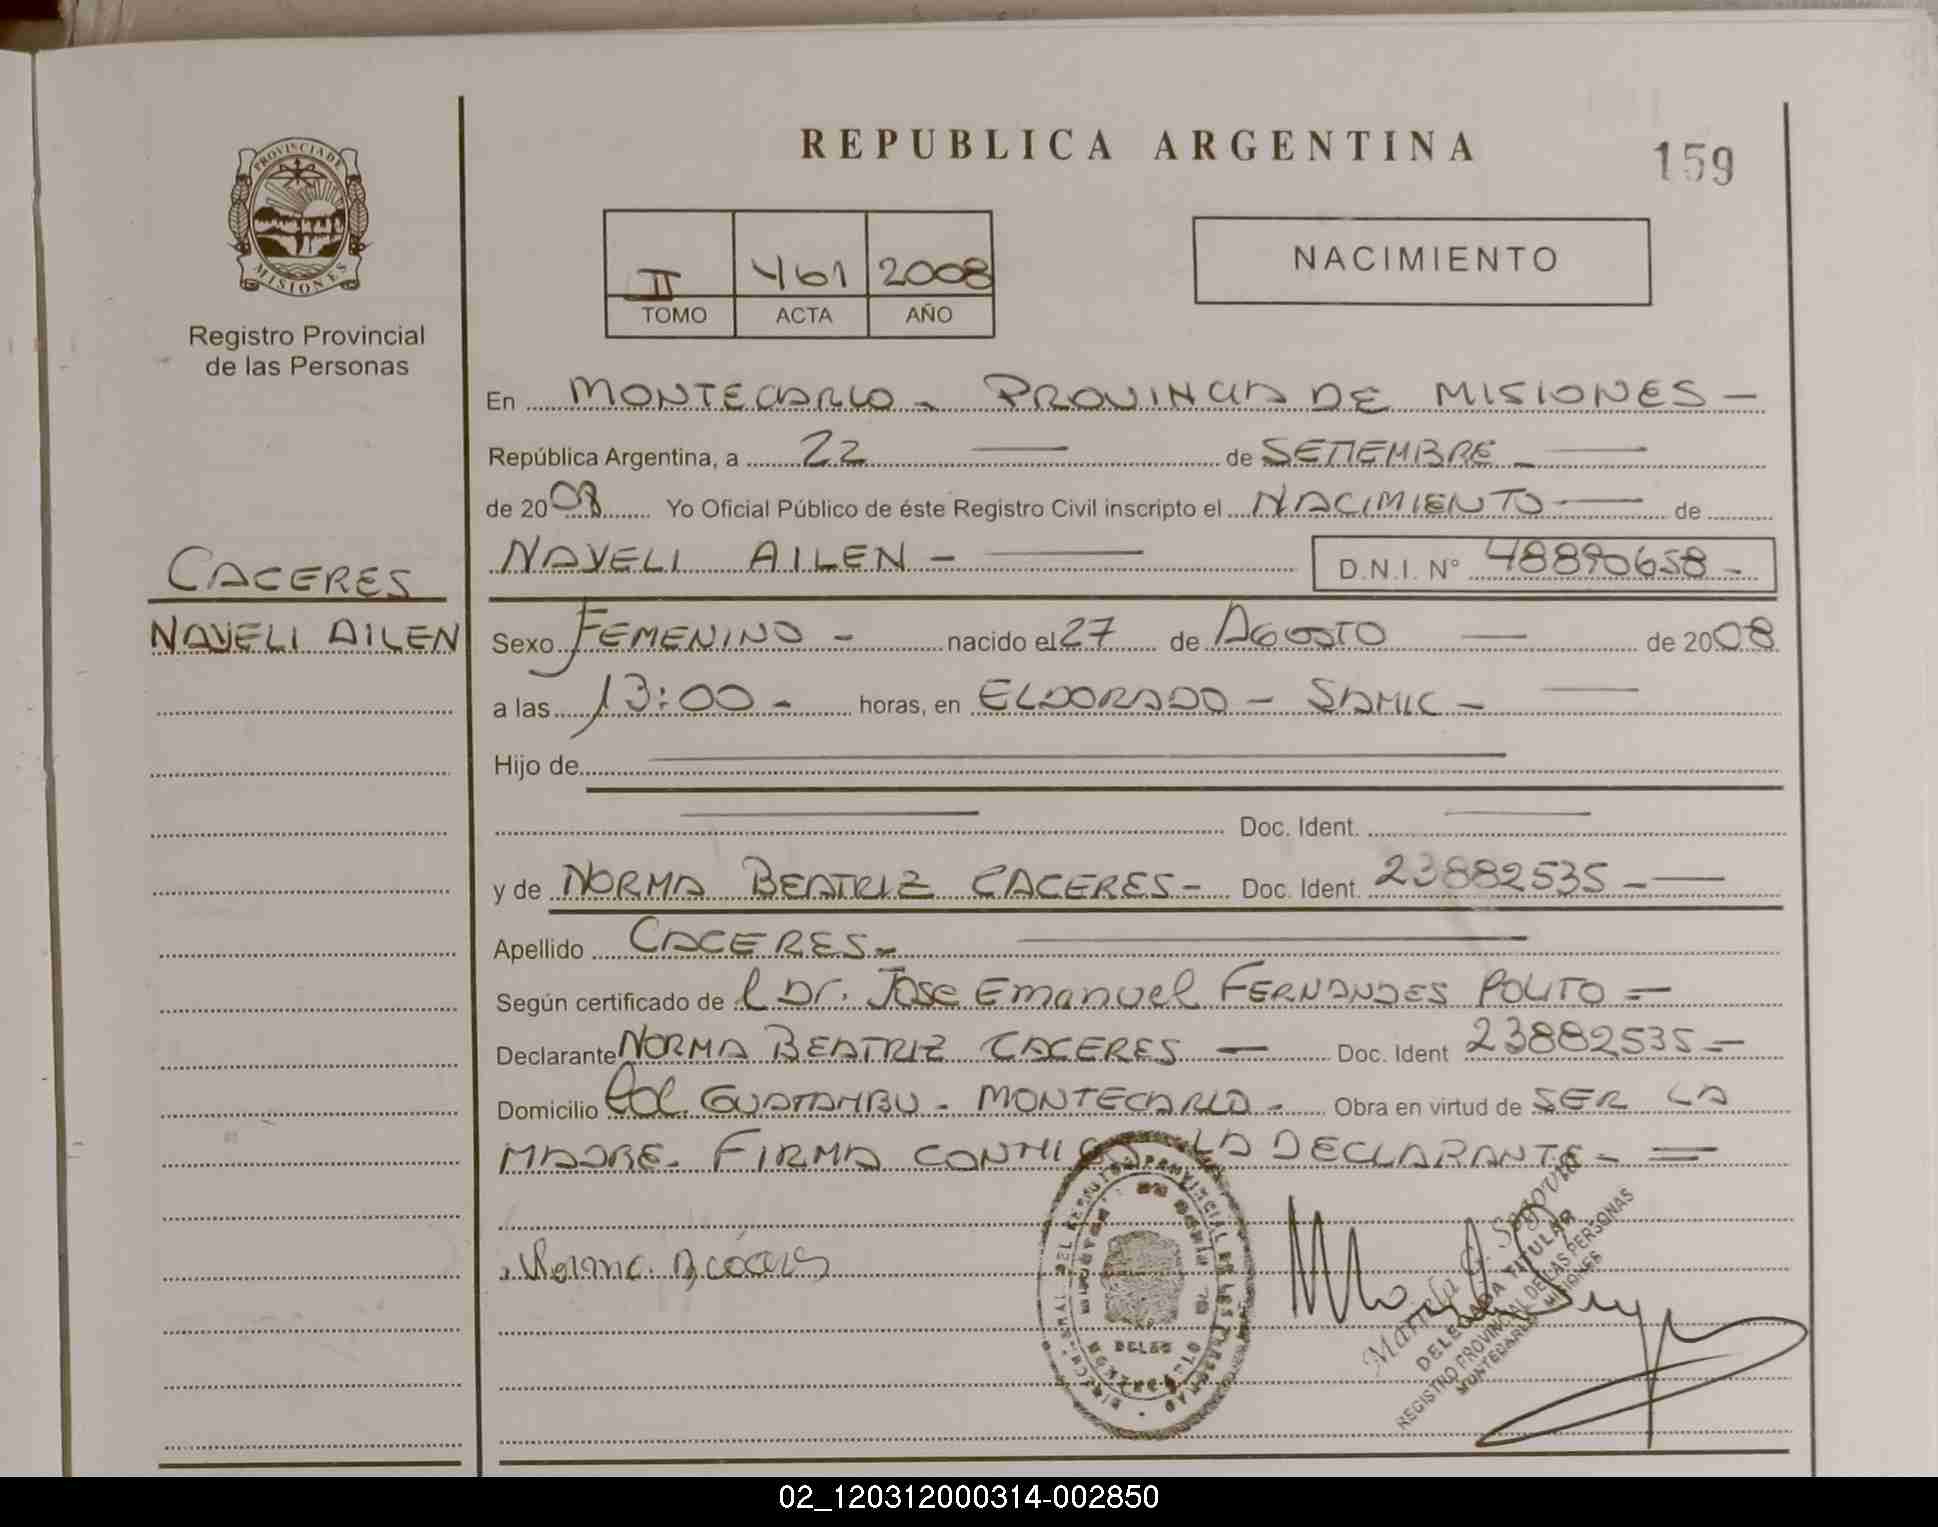 REPUBLICA ARGENTINA
159
PROVINCIA DE
MISIONES
Registro Provincial
de las Personas
II 461 2008
TOMO ACTA AÑO
NACIMIENTO
En MONTECARLO - PROVINCIA DE MISIONES -
República Argentina, a 22 de SETIEMBRE -
de 2008 Yo Oficial Público de éste Registro Civil inscripto el NACIMIENTO - de
CACERES
NAYELI AILEN
NAYELI AILEN - D.N.I. N° 48890658 -
Sexo FEMENINO - nacido el 27 de AGOSTO - de 2008
a las 13:00 - horas, en ELDORADO - SAMIC -
Hijo de
Doc. Ident.
y de NORMA BEATRIZ CACERES - Doc. Ident. 23882535 -
Apellido CACERES -
Según certificado de l Dr. Jose Emanuel FERNANDES POLITO =
Declarante NORMA BEATRIZ CACERES - Doc. Ident 23882535 -
Domicilio Col. GUATAMBU - MONTECARLO - Obra en virtud de SER LA
MADRE. FIRMA CONMIGO LA DECLARANTE - =
Mariela G. Segovia
DELEGADA TITULAR
REGISTRO PROVINCIAL DE LAS PERSONAS
MONTECARLO - MISIONES
02_120312000314-002850